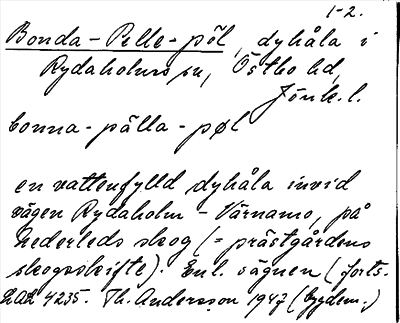 1-2.
Bonda-Pelle-pöl, dyhåla i
Rydaholms sn, Östbo hd,
Jönk. l.
bonna-pälla-pøl
en vattenfylld dyhåla invid
vägen Rydaholm - Värnamo, på
Nederleds skog (= prästgårdens
skogsskifte). Enl. sägnen (forts.
LAL 4235. Th. Andersson 1947 (bygdem.)